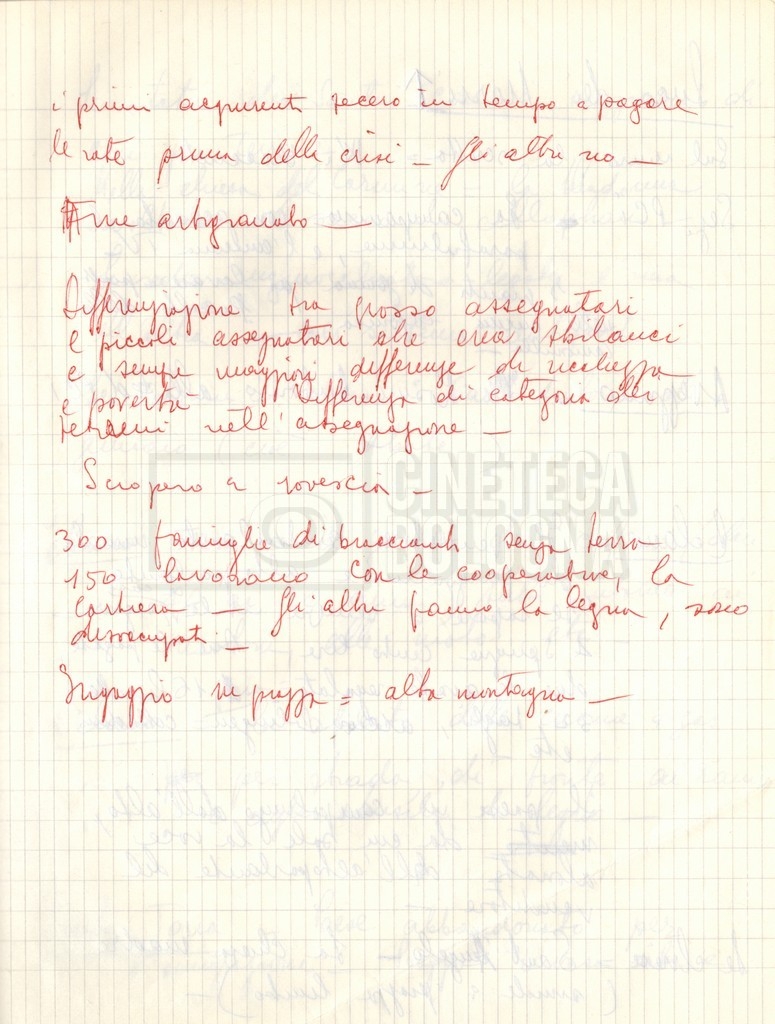 i primi acquirenti fecero in tempo a pagare
le rate prima della crisi — Gli altri no —
Fine artigianato —
Differenziazione tra grosso assegnatari
e piccoli assegnatari che crea sbilanci
e sempre maggiori differenze di ricchezza
e povertà Differenza di categoria dei
terreni nell'assegnazione —
Sciopero a rovescia —
CINETECA
BOLOGNA
300 famiglie di braccianti senza terra
150 lavorano con le cooperative, la
Cartiera — Gli altri fanno la legna, sono
disoccupati —
Ingaggio in piazza = alta montagna —